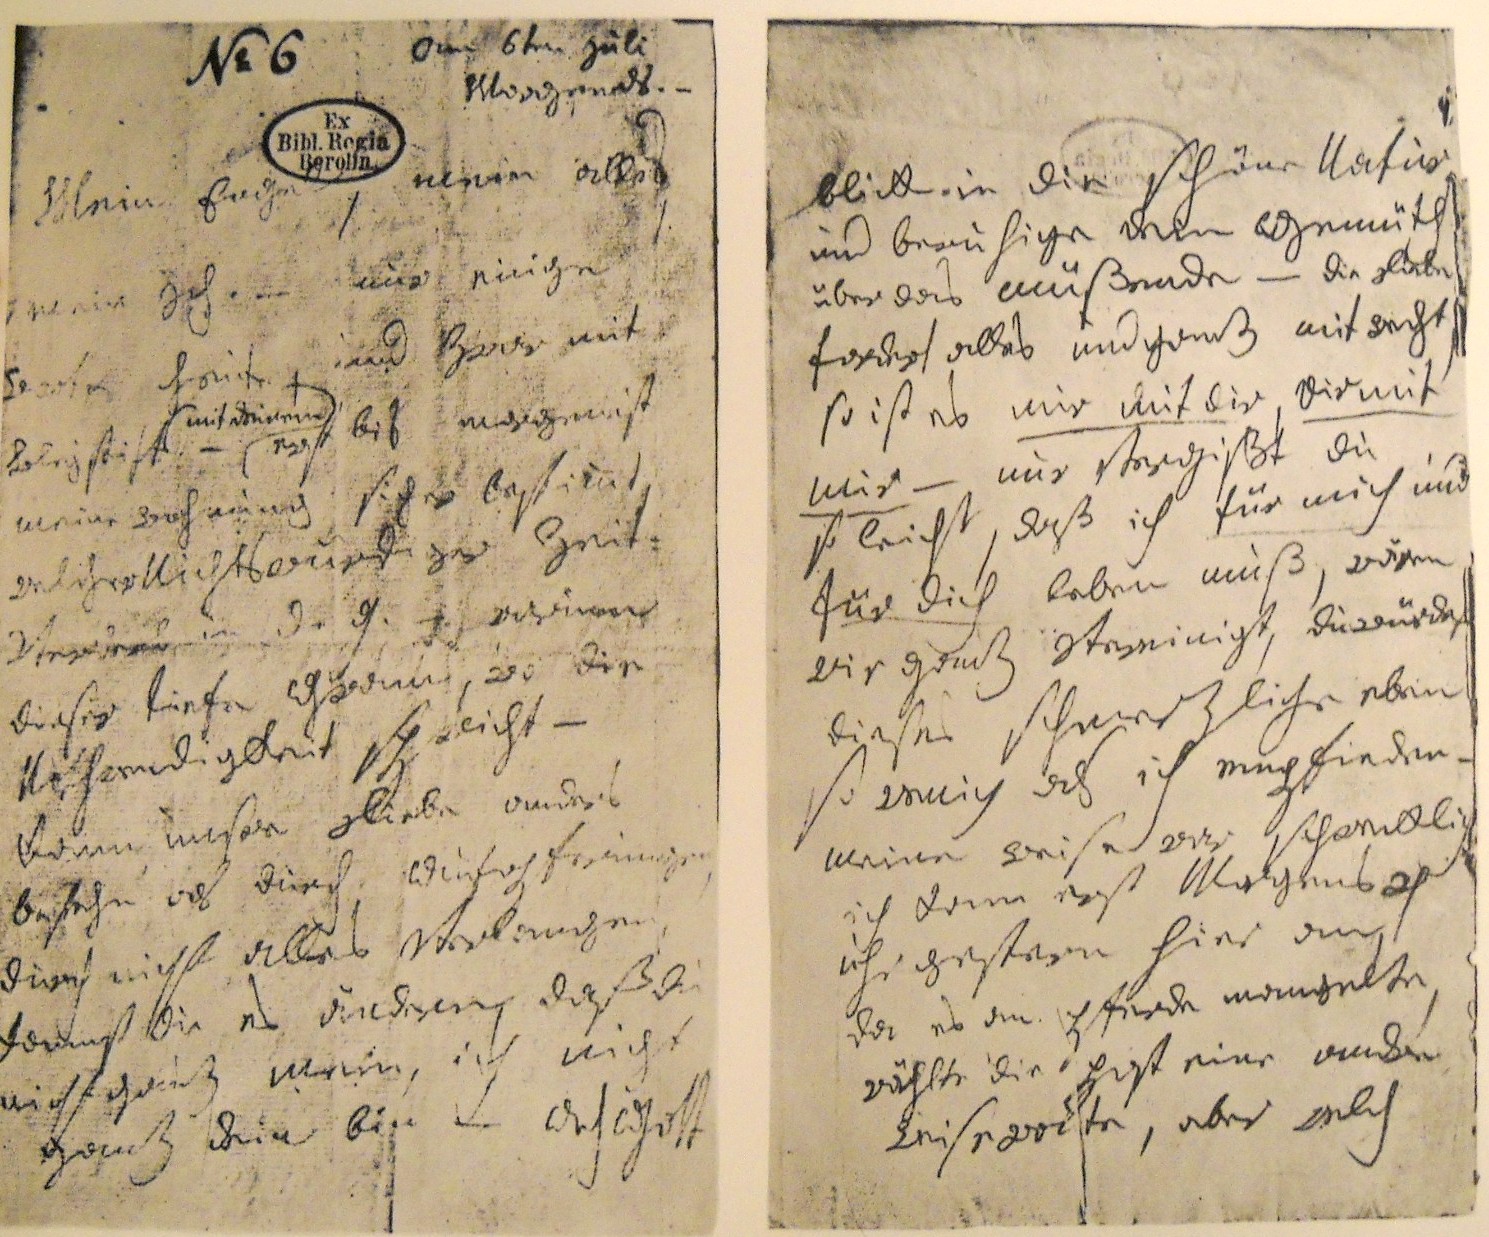 № 6
am 6ten Juli
Morgends. –
Ex
Bibl. Regia
Berolin.
Mein Engel, mein alles,
mein Ich. – nur einige
Worte heute, und zwar mit
Bleystift – (mit deinem)
erst bis morgen ist
meine Wohnung sicher bestimmt,
welcher Nichtswürdiger Zeit-
Verderb in d. g. – warum
dieser tiefe Gram, wo die
Nothwendigkeit spricht –
Kann unsre Liebe anders
bestehn als durch Aufopferungen,
durch nicht alles Verlangen,
kannst du es ändern, daß du
nicht ganz mein, ich nicht
ganz dein bin – Ach Gott
blick in die schöne Natur
und beruhige dein Gemüth
über das müßende – die Liebe
fordert alles und ganz mit recht,
so ist es mir mit dir, dir mit
mir – nur Vergißt du
so leicht, daß ich für mich und
für dich leben muß, wären
wir ganz Vereinigt, du würdest
dieses schmerzliche eben
so wenig als ich empfinden –
meine Reise war schrecklich
ich kam erst Morgens 4
uhr gestern hier an,
da es an Pferde mangelte,
wählte die Post eine andre
Reiseroute, aber welch